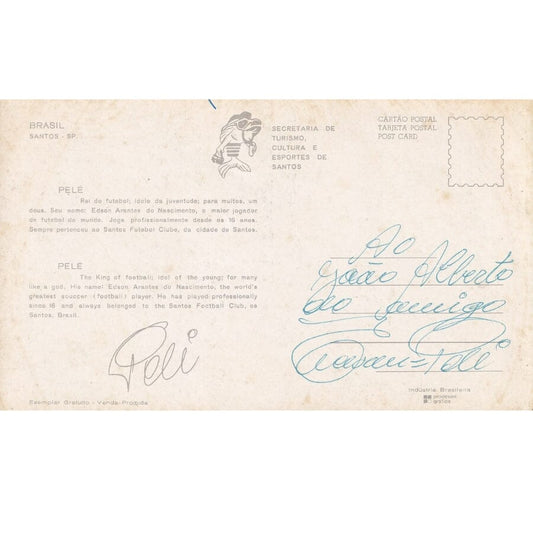 BRASIL
SANTOS - SP.
SECRETARIA DE
TURISMO,
CULTURA E
ESPORTES DE
SANTOS
CARTÃO POSTAL
TARJETA POSTAL
POST CARD
PELÉ
Rei do futebol; ídolo da juventude; para muitos, um
deus. Seu nome: Edson Arantes do Nascimento, o maior jogador
de futebol do mundo. Joga profissionalmente desde os 16 anos.
Sempre pertenceu ao Santos Futebol Clube, da cidade de Santos.
PELÉ
The King of football; idol of the young; for many
like a god. His name: Edson Arantes do Nascimento, the world's
greatest soccer (football) player. He has played professionally
since 16 and always belonged to the Santos Football Club, os
Santos, Brasil.
Pelé
Ao
João Alberto
do amigo
Edson=Pelé
Exemplar Gratuito - Venda Proibida
Indústria Brasileira